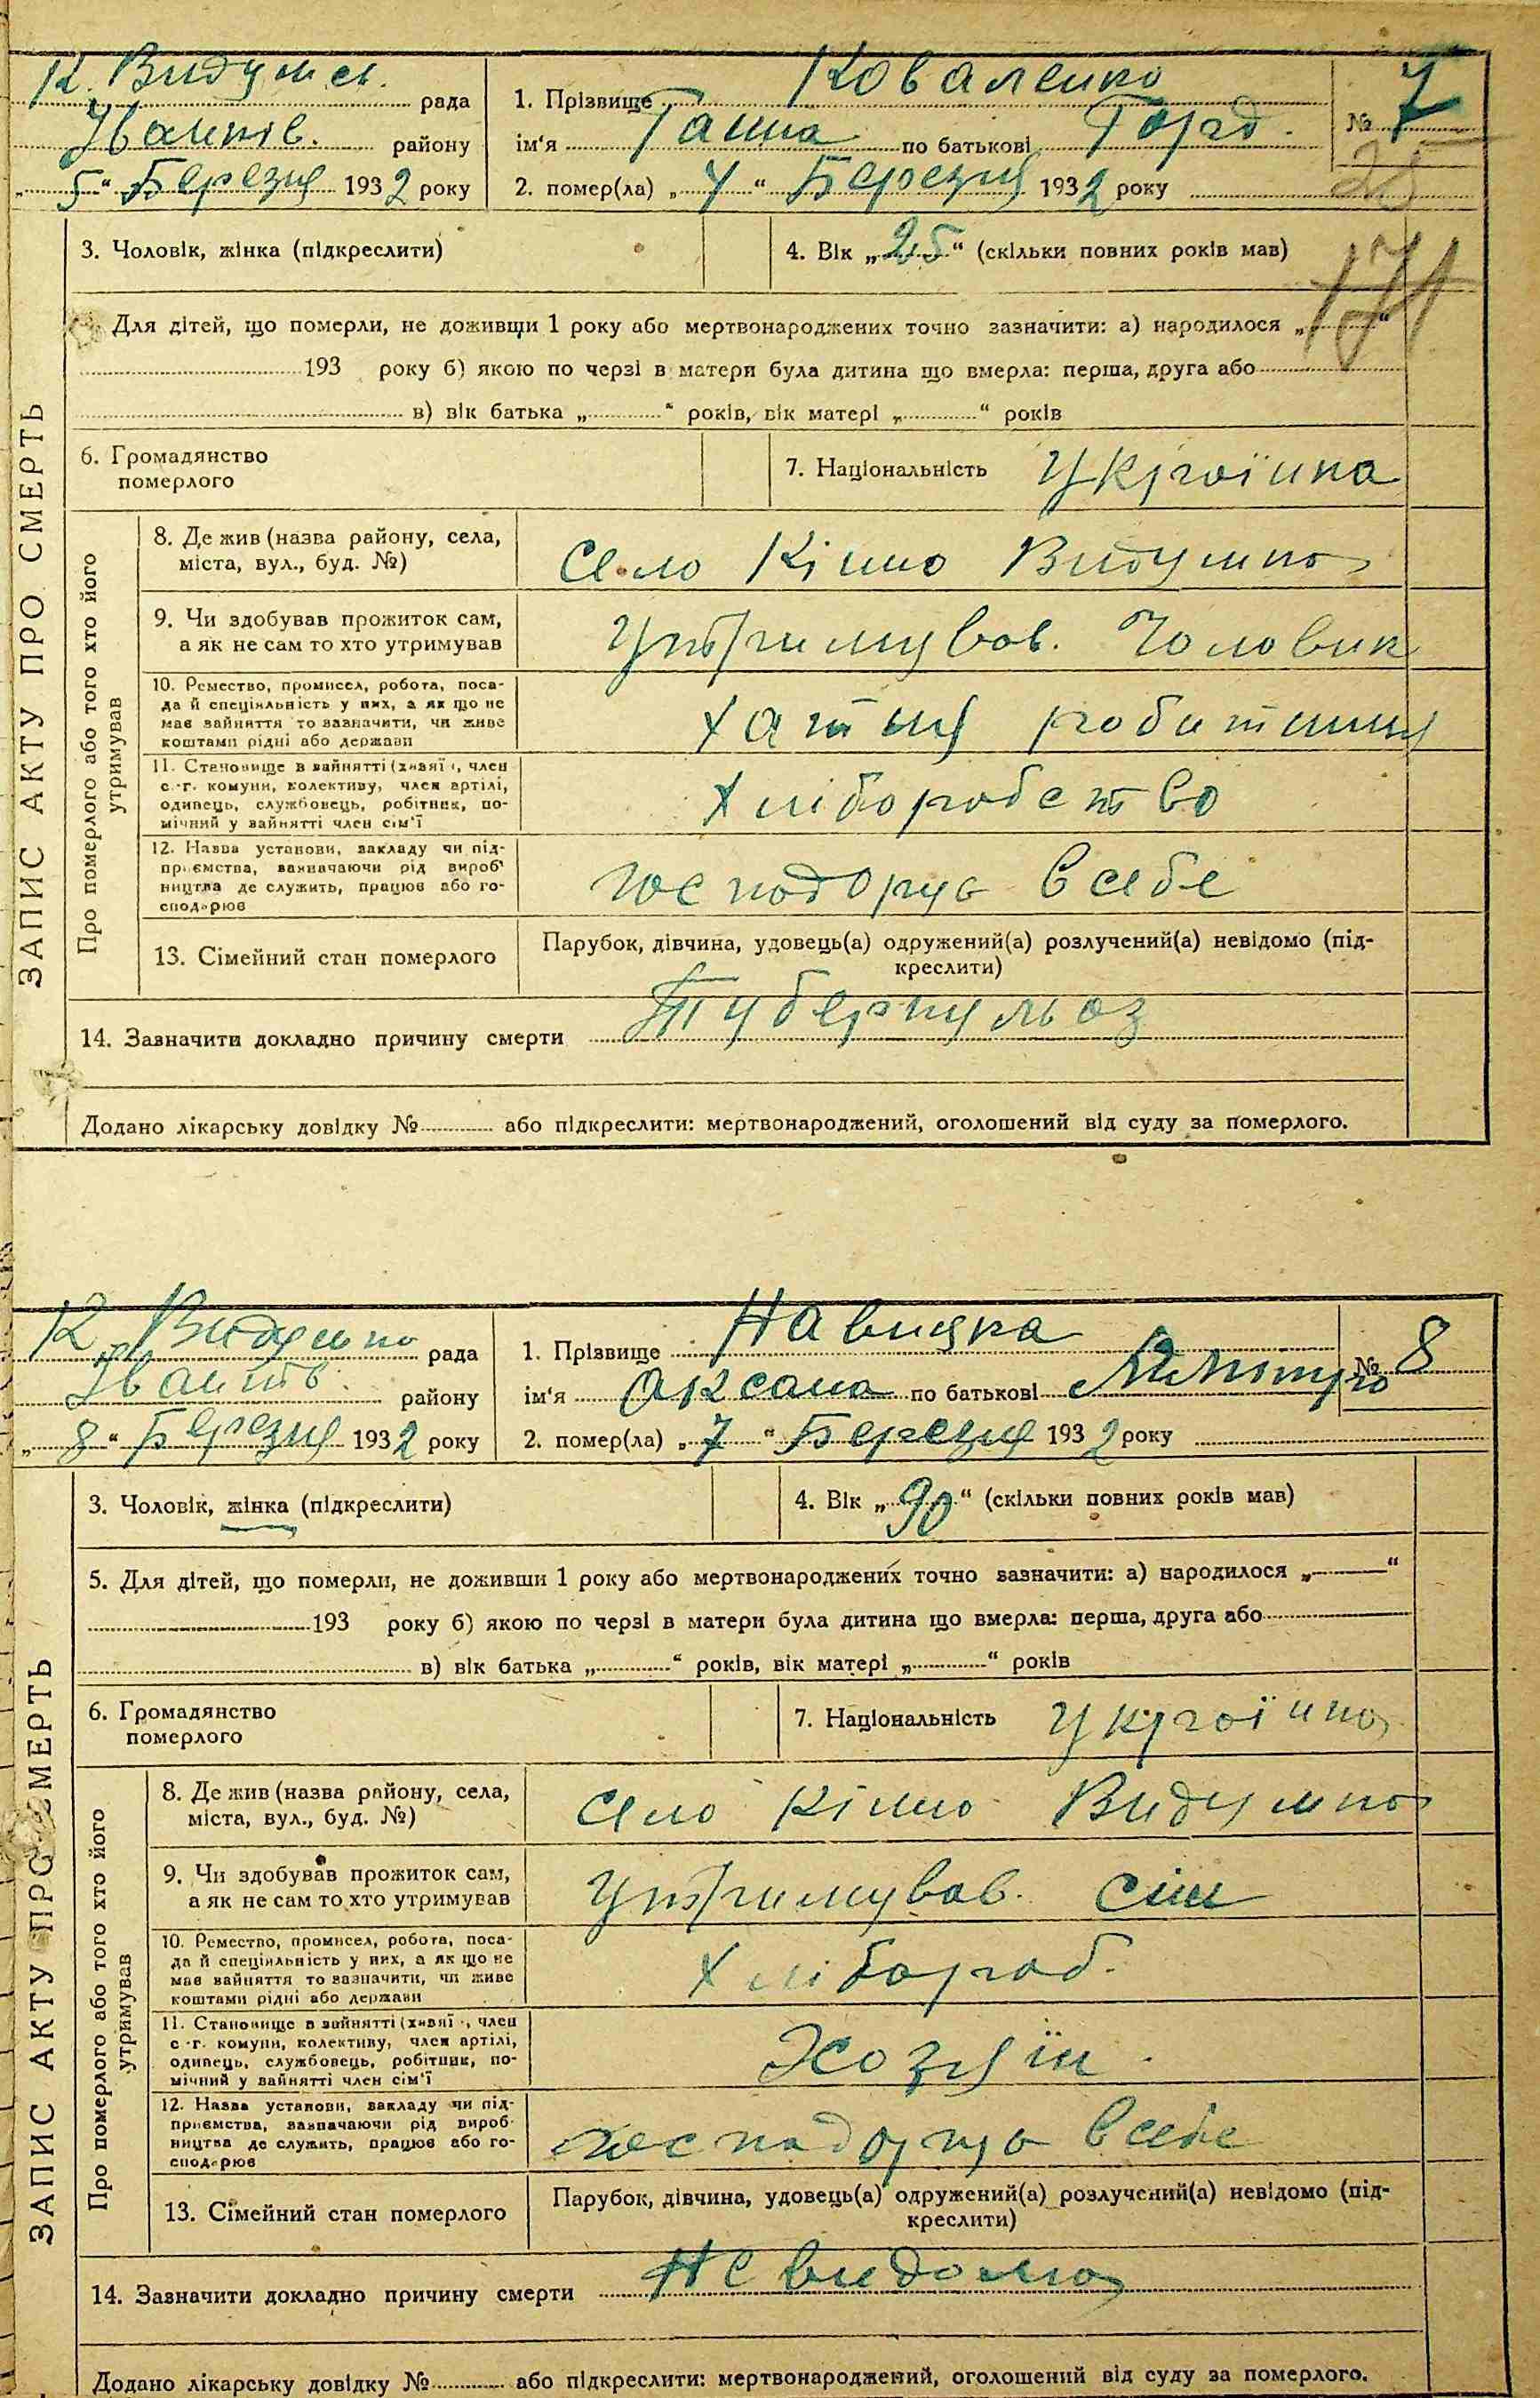 К. Видумск. рада
Іванків. району
„5“ Березня 1932 року
1. Прізвище Коваленко
ім'я Ганна по батькові Горд.
№ 7
2. помер(ла) „4“ Березня 1932 року
25
171
3. Чоловік, жінка (підкреслити)
4. Вік „25“ (скільки повних років мав)
Для дітей, що померли, не доживши 1 року або мертвонароджених точно зазначити: а) народилося „ “
193 року б) якою по черзі в матери була дитина що вмерла: перша, друга або
в) вік батька „ “ років, вік матері „ “ років
6. Громадянство
померлого
7. Національність Українка
ЗАПИС АКТУ ПРО СМЕРТЬ
Про померлого або того хто його
утримував
8. Де жив (назва району, села,
міста, вул., буд. №)
Село Кінно Видумка
9. Чи здобував прожиток сам,
а як не сам то хто утримував
Утримував. Чоловик
10. Ремество, промисел, робота, поса-
да й спеціяльність у них, а як що не
має зайняття то зазначити, чи живе
коштами рідні або держави
Хатня робитниця
11. Становище в зайнятті (хазяї , член
с.-г. комуни, колективу, член артілі,
одинець, службовець, робітник, по-
мічний у зайнятті член сім'ї
Хліборобство
12. Назва установи, закладу чи під-
приємства, зазначаючи рід вироб-
ництва де служить, працює або го-
сподарює
господорує в себе
13. Сімейний стан померлого
Парубок, дівчина, удовець(а) одружений(а) розлучений(а) невідомо (під-
креслити)
14. Зазначити докладно причину смерти Туберкульоз
Додано лікарську довідку № або підкреслити: мертвонароджений, оголошений від суду за померлого.
К. Видумка рада
Іванків. району
„8“ Березня 1932 року
1. Прізвище Навицка
ім'я Оксана по батькові
№ 8
2. помер(ла) „7“ Березня 1932 року
3. Чоловік, жінка (підкреслити)
4. Вік „90“ (скільки повних років мав)
5. Для дітей, що померли, не доживши 1 року або мертвонароджених точно зазначити: а) народилося „ “
193 року б) якою по черзі в матери була дитина що вмерла: перша, друга або
в) вік батька „ “ років, вік матері „ “ років
6. Громадянство
померлого
7. Національність Українка
ЗАПИС АКТУ ПРО СМЕРТЬ
Про померлого або того хто його
утримував
8. Де жив (назва району, села,
міста, вул., буд. №)
Село Кінно Видумка
9. Чи здобував прожиток сам,
а як не сам то хто утримував
Утримував. син
10. Ремество, промисел, робота, поса-
да й спеціяльність у них, а як що не
має зайняття то зазначити, чи живе
коштами рідні або держави
Хлібороб.
11. Становище в зайнятті (хазяї , член
с.-г. комуни, колективу, член артілі,
одинець, службовець, робітник, по-
мічний у зайнятті член сім'ї
Хозяїн.
12. Назва установи, закладу чи під-
приємства, зазначаючи рід вироб-
ництва де служить, працює або го-
сподарює
господорує в себе
13. Сімейний стан померлого
Парубок, дівчина, удовець(а) одружений(а) розлучений(а) невідомо (під-
креслити)
14. Зазначити докладно причину смерти Невидомо
Додано лікарську довідку № або підкреслити: мертвонароджений, оголошений від суду за померлого.